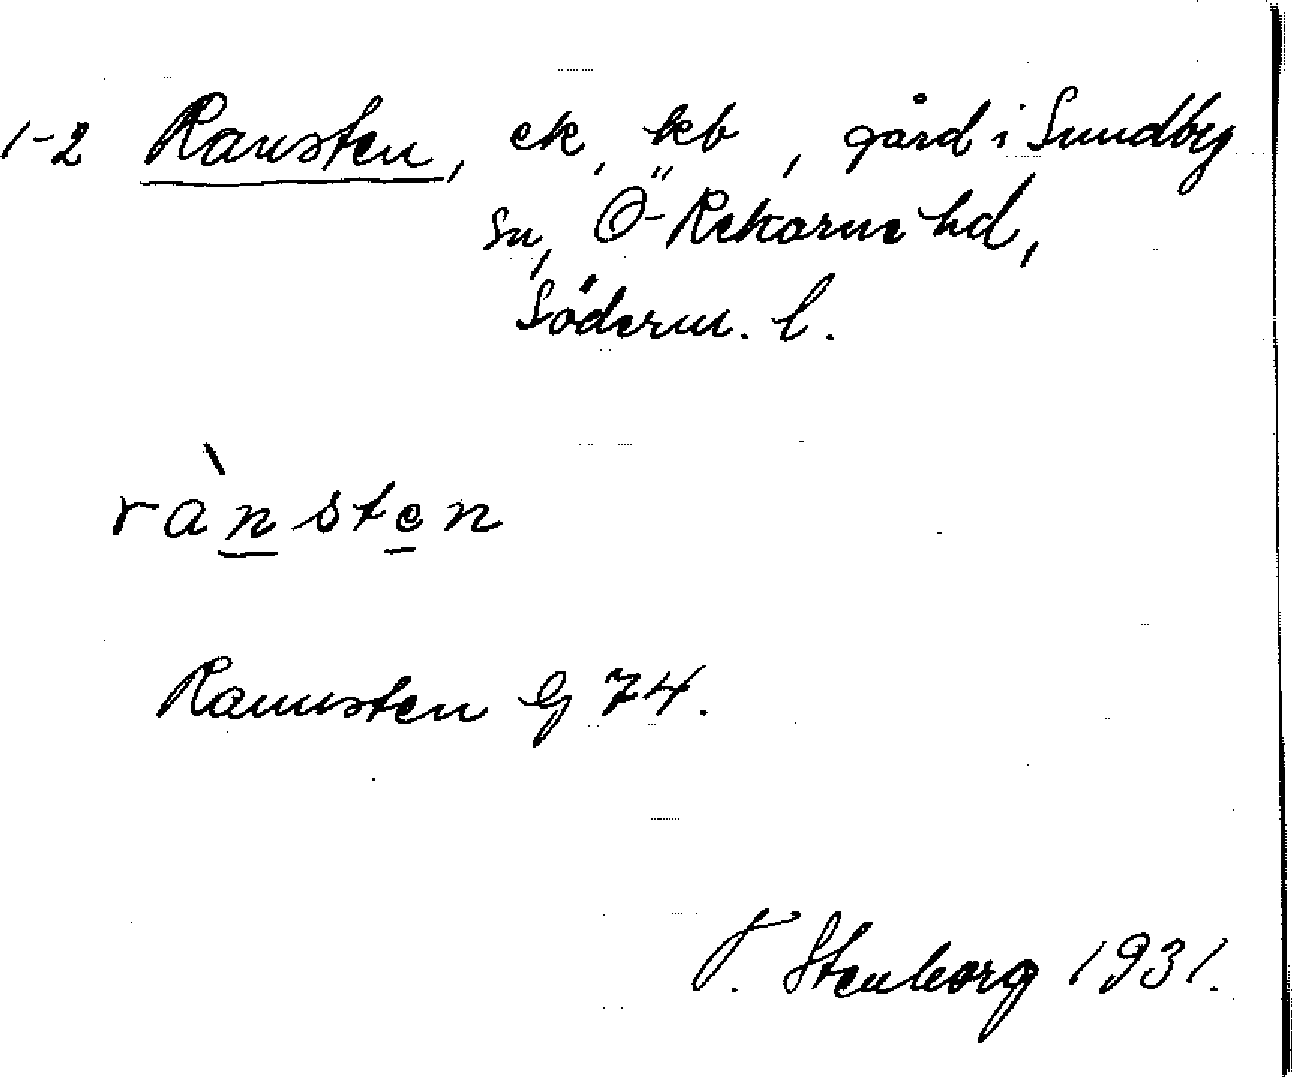 1-2 Ransten, ek, kb, gård i Sundby
sn, Ö-Rekarne hd,
Söderm. l.
rànsten
Rannsten G 74.
T. Stenborg 1931.